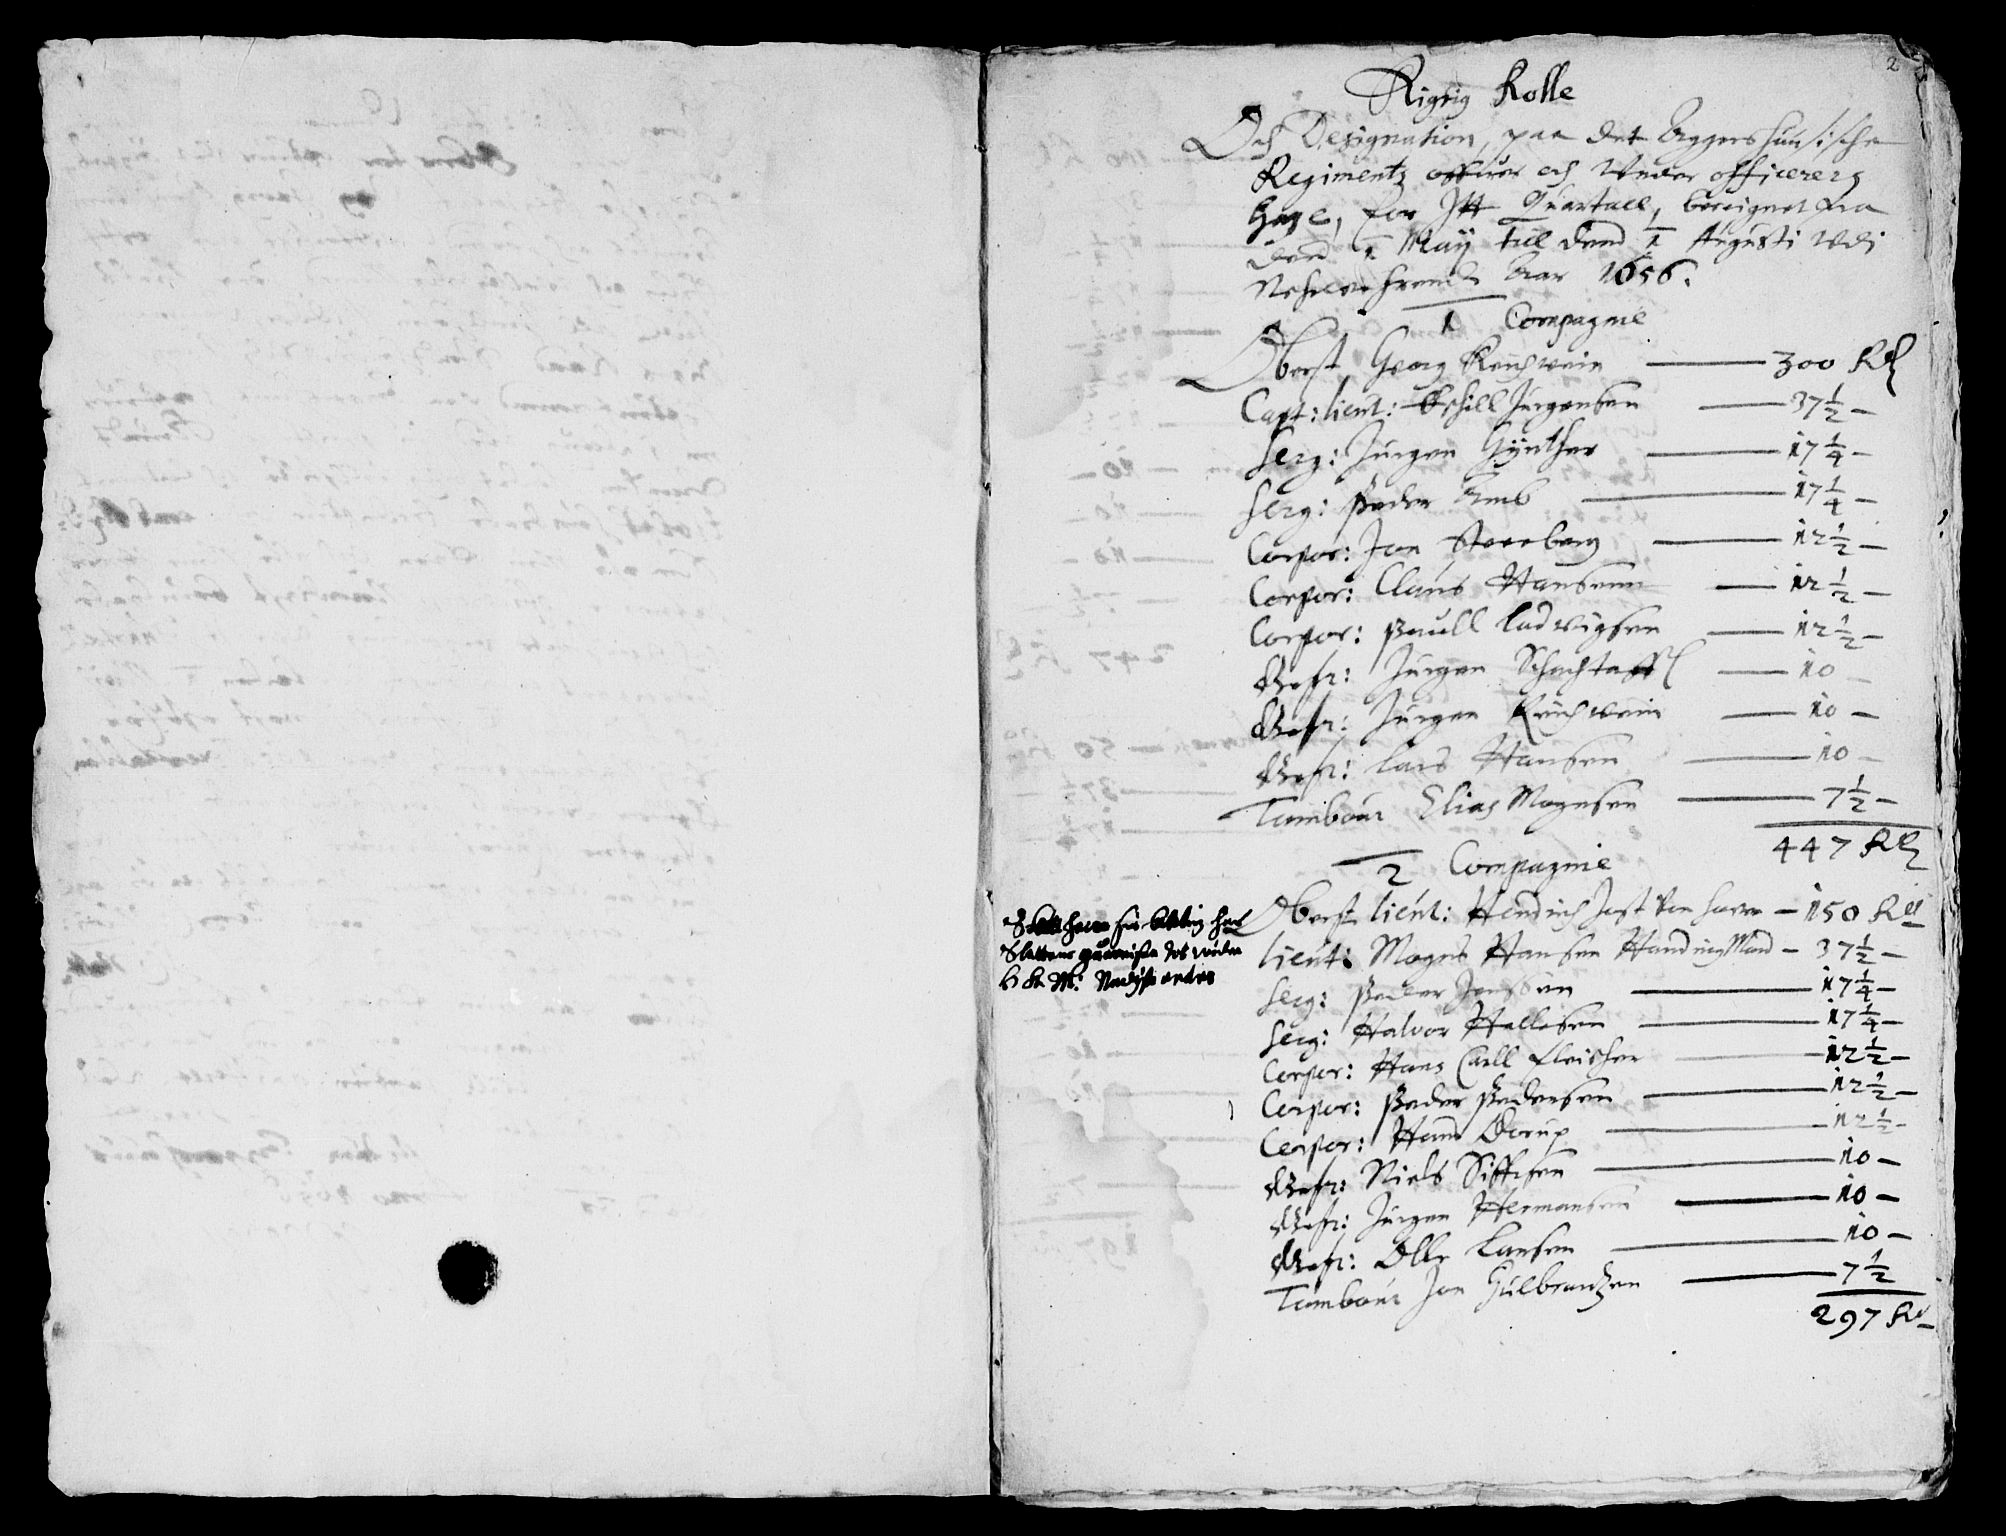 2
Rigtig Rolle
Och Designation, paa det Aggershuusische
Regimentz officerer och Under officerers
Gage, for Itt Quartall, beregnet fra
dend 1 May till dend 1 Augusti Udi
Nehrverendes Aar 1656.
1 Compagnie
Oberst Georg Reichwein — 300 Rd
Capt: lieut: Eschill Jürgensen — 37 1/2 —
Serg: Jürgen Gynther — 17 1/4 —
Serg: Peder Amb — 17 1/4 —
Corpor: Jon Steenberg — 12 1/2 —
Corpor: Claus Hansenn — 12 1/2 —
Corpor: Pauell Ludvigsen — 12 1/2 —
Gefr: Jürgen Schachtaffl — 10 —
Gefr: Jürgen Reichwein — 10 —
Gefr: Lars Hansen — 10 —
Tambour Elias Mogensen — 7 1/2 —
447 Rd
2 Compagnie
Oberst lieut: Hendrich Jost Von — 150 Rd
lieut: Mogns Hansen — 37 1/2 —
Serg: Peder Jenssen — 17 1/4 —
Serg: Halvor Hallesen — 17 1/4 —
Corpor: Hans Carll Fleischer — 12 1/2 —
Corpor: Peder Pedersen — 12 1/2 —
Corpor: Hans Dorup — 12 1/2 —
Gefr: Niels Siffrsen — 10 —
Gefr: Jürgen Hermansen — 10 —
Gefr: Olle Larsen — 10 —
Tambour Jon Gulbrantzen — 7 1/2
297 Rd